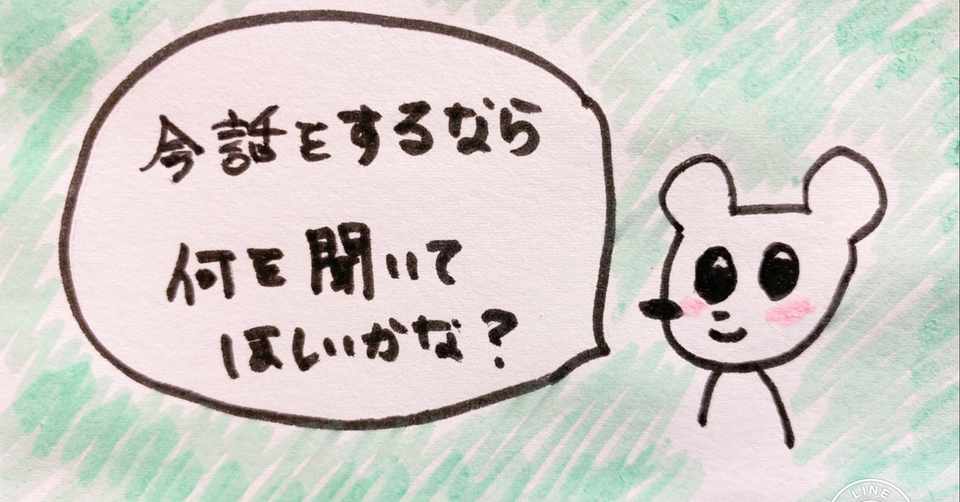 今話をするなら
何を聞いて
ほしいかな？
LINE